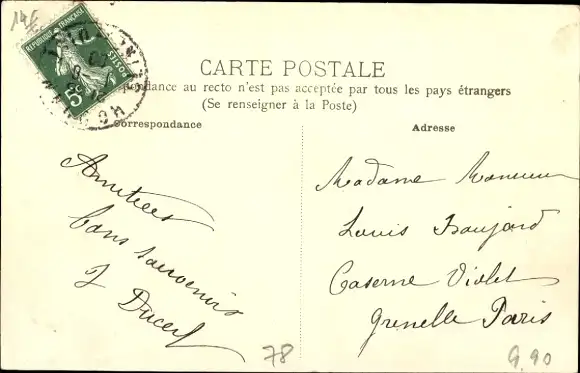 14F
RÉPUBLIQUE FRANÇAISE
POSTES
5c
CARTE POSTALE
pondance au recto n'est pas acceptée par tous les pays étrangers
(Se renseigner à la Poste)
Correspondance
Amitiées
bons souvenirs
J Ducerf
78
Adresse
Madame Monsieur
Louis Boujard
Caserne Violet
Grenelle Paris
G. 90